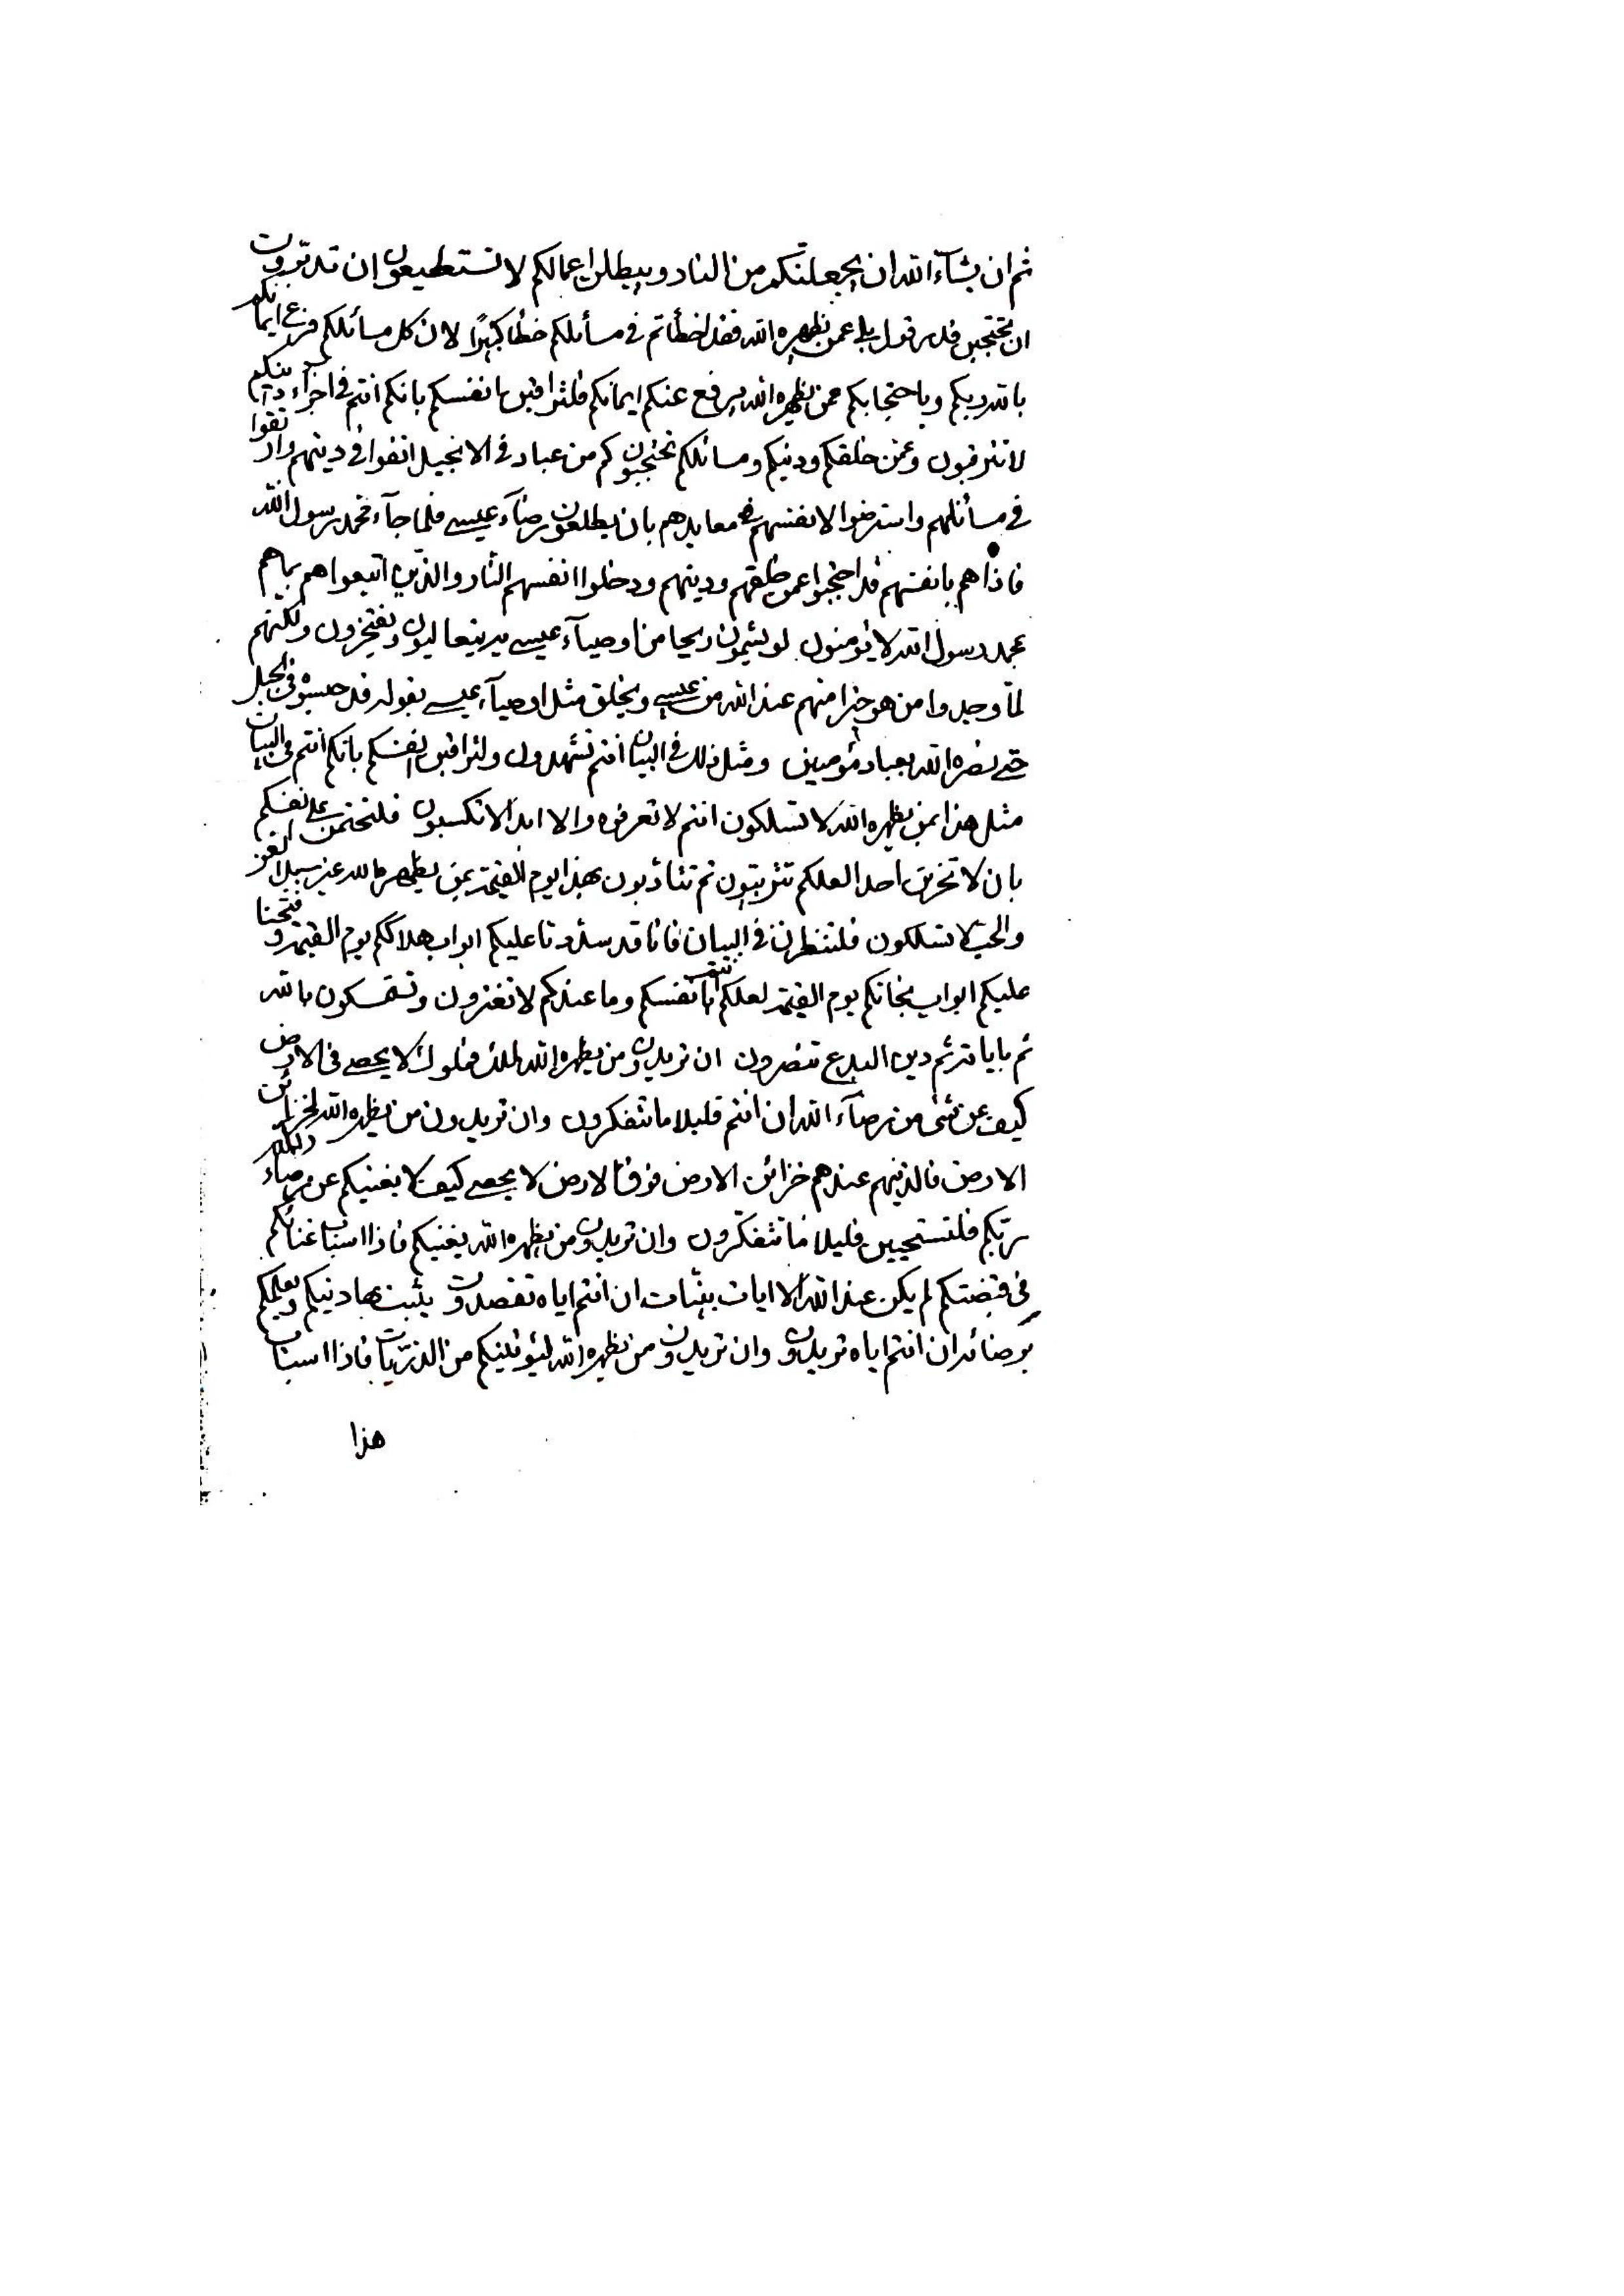 ثم ان يشآء الله ان يجعلنكم من النار ويبطلن اعمالكم لا تستطيعون ان تدبرون
ان تحتجبن قدر قول بلى عمن يظهره الله فقد اخطأتم فى مسائلكم خطأ كبيرًا لان كل مسائلكم فرع ايمانكم
بالله ربكم وباحتجابكم عمن يظهره الله يرفع عنكم ايمانكم فلتراقبن انفسكم بانكم انتم فى اجرآء دينكم
لا وعمن خلقكم ودينكم ومسائلكم تحتجبون كم من عباد فى الانجيل اتقوا فى دينهم واتقوا
فى مسائلهم واسترضوا لانفسهم معابدهم بان يطلعون رضآء عيسى فلما جآء محمد رسول الله
فاذا هم بانفسهم قد احتجبوا عمن خلقهم ودينهم ودخلوا انفسهم النار والذين اتبعوا هم بما هم
بمحمد رسول الله لا يؤمنون لو يشمون ريحا من اوصيآء عيسى به يتعاليون ويفتخرون ولكنهم
لما وجدوا من هو خيرا منهم عند الله من عيسى ويخلق مثل اوصيآء عيسى بقوله قد حبسوه فى الجبل
حتى نصره الله بعباد مؤمنين ومثل ذلك فى البيان انتم تشهدون ولتراقبن انفسكم بانكم انتم فى البيان
مثل هذا بمن يظهره الله لا تسلكون انتم لا تعرفوه والا ابدا لا تكسبون فلتختمن على انفسكم
بان لا تحزنن احدا لعلكم تتربيون ثم تتادبون بهذا يوم القيمة بمن يظهره الله غير سبيل العز
والحب لا تسلكون فلتنظرن فى البيان فانا قد سددنا عليكم ابواب هلاككم يوم القيمة وفتحنا
عليكم ابواب نجاتكم يوم القيمة لعلكم بانفسكم وما عندكم لا تغترون وتتمسكون بالله
ثم باياته ثم دين البدع تنصرون ان تريدون من يظهره الله لملك فملوك لا يحصى فى الارض
كيف عن شئ من رضآء الله ان انتم قليلا ما تتفكرون وان تريدون من يظهره الله لخزائن
الارض فالذينهم عندهم خزائن الارض فوق الارض لا يحصى كيف لا يغنيكم عن رضآء
ربكم فلتستحيين قليلا ما تتفكرون وان تريدون من يظهره الله يغنيكم فاذا اسباب غنائكم
فى قبضتكم لم يكن عند الله الا ايات بينات ان انتم اياه تقصدون يثبت بها دينكم ويعلمكم
برضائه ان انتم اياه تريدون وان تريدون من يظهره الله ليؤتينكم من الذريات فاذا اسباب
هذا